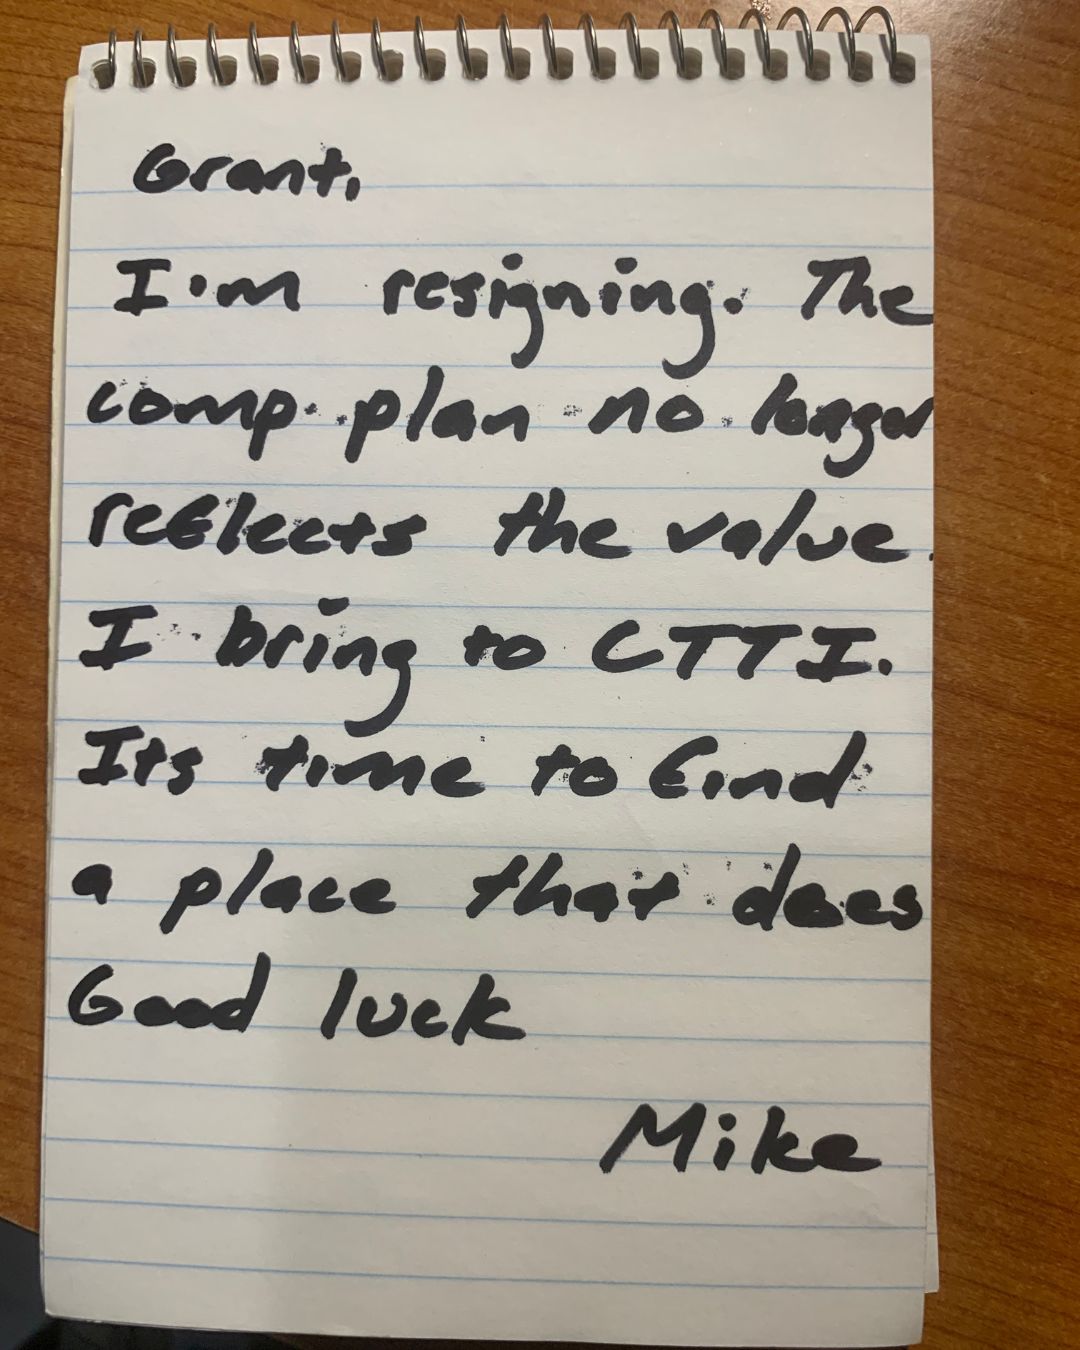 Grant,
I'm resigning. The
comp plan no longer
reflects the value
I bring to CTTI.
Its time to find
a place that does
Good luck
Mike